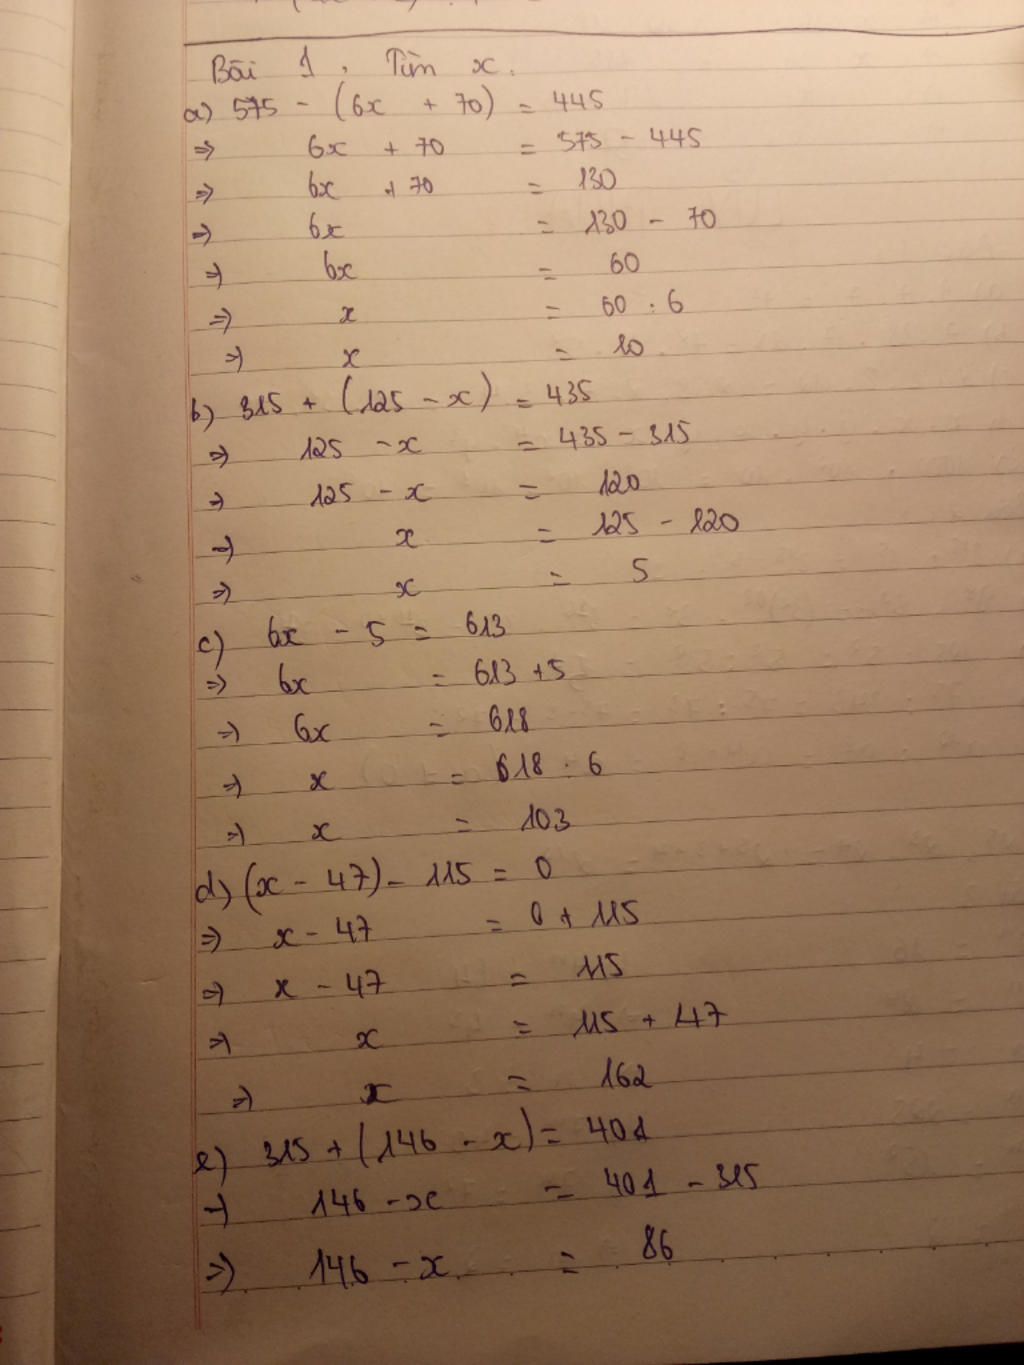 Bài 1. Tìm x.
a) 575 - (6x + 70) = 445
=> 6x + 70 = 575 - 445
=> 6x + 70 = 130
=> 6x = 130 - 70
=> 6x = 60
=> x = 60 : 6
=> x = 10
b) 315 + (125 - x) = 435
=> 125 - x = 435 - 315
=> 125 - x = 120
=> x = 125 - 120
=> x = 5
c) 6x - 5 = 613
=> 6x = 613 + 5
=> 6x = 618
=> x = 618 : 6
=> x = 103
d) (x - 47) - 115 = 0
=> x - 47 = 0 + 115
=> x - 47 = 115
=> x = 115 + 47
=> x = 162
e) 315 + (146 - x) = 401
=> 146 - x = 401 - 315
=> 146 - x = 86